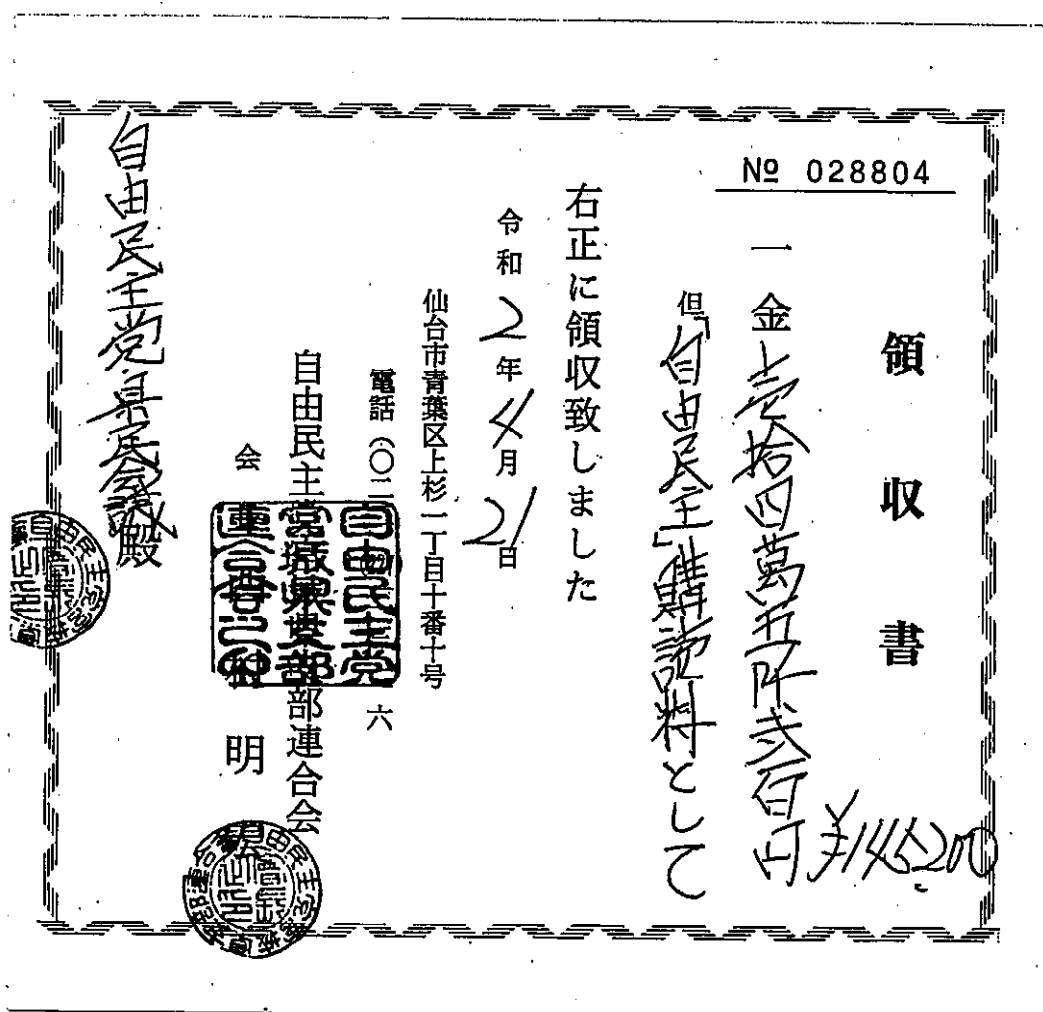 領収書
№ 028804
一金壱拾四萬五阡弐百円
¥145,200
但「自由民主」購読料として
右正に領収致しました
令和2年4月21日
仙台市青葉区上杉一丁目十番十号
電話(〇二 六
自由民主党宮城県支部連合会
会 村 明
自由民主党県民会議殿